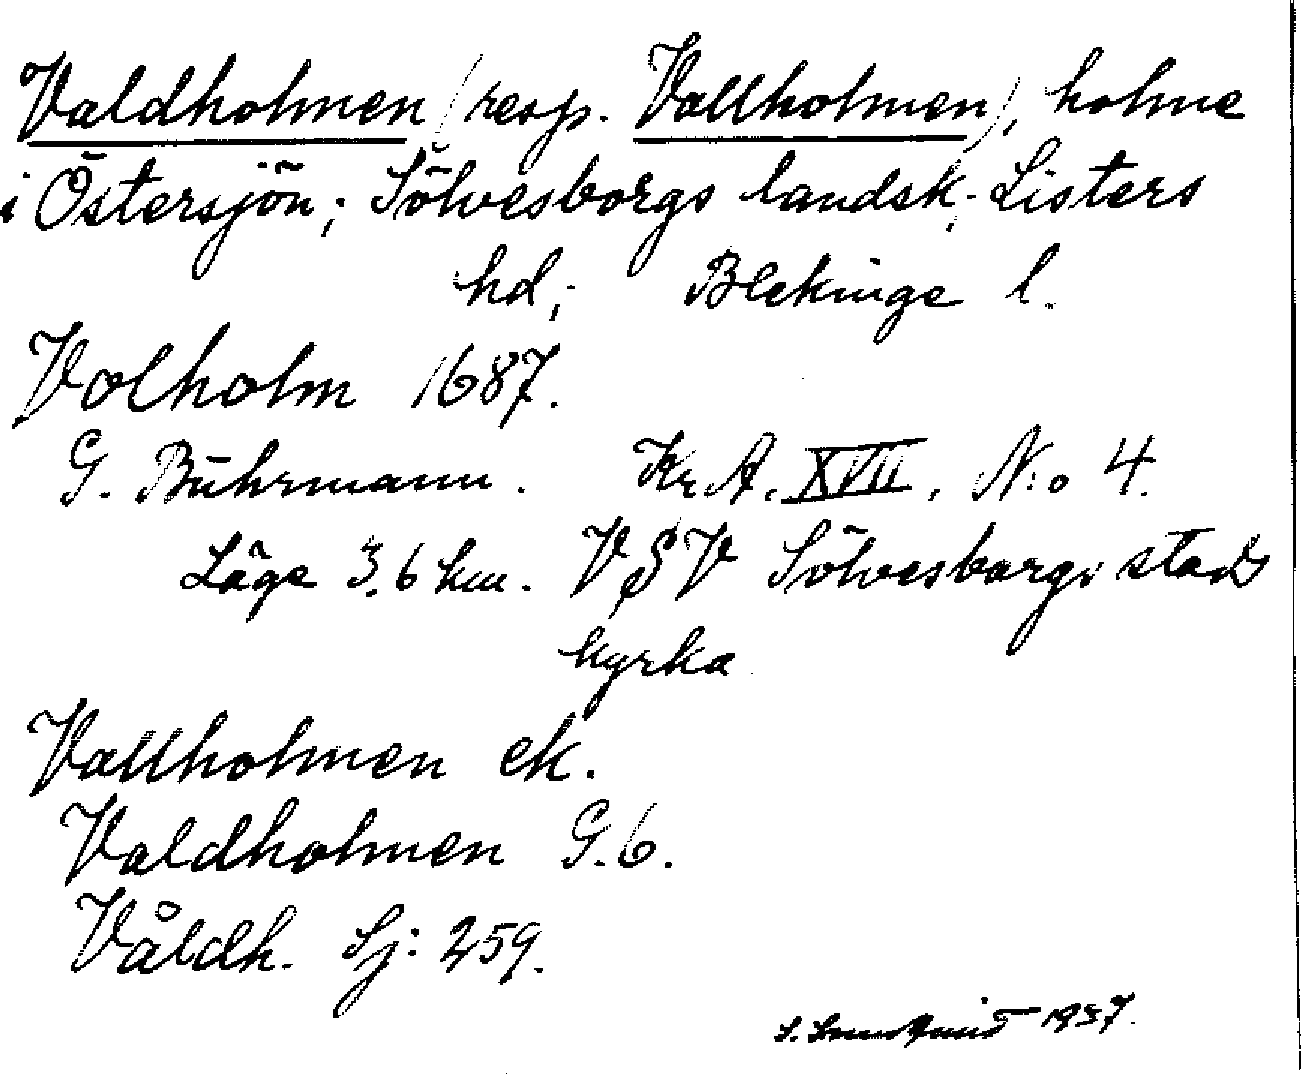 Valdholmen (resp. Vallholmen), holme
i Östersjön; Sölvesborgs landsk; Listers
hd; Blekinge l.
Volholm 1687.
G. Buhrmann. Kr.A. XVII, N:o 4.
Läge 3,6 km. VSV Sölvesborgs stads
kyrka
Vallholmen ek.
Valdholmen G.6.
Våldh. Sj: 259.
1937.